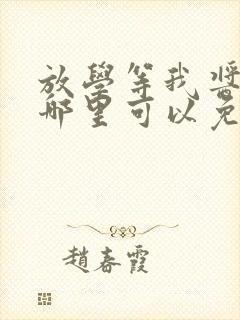 放學等我醬
那里可以免
趙春霞